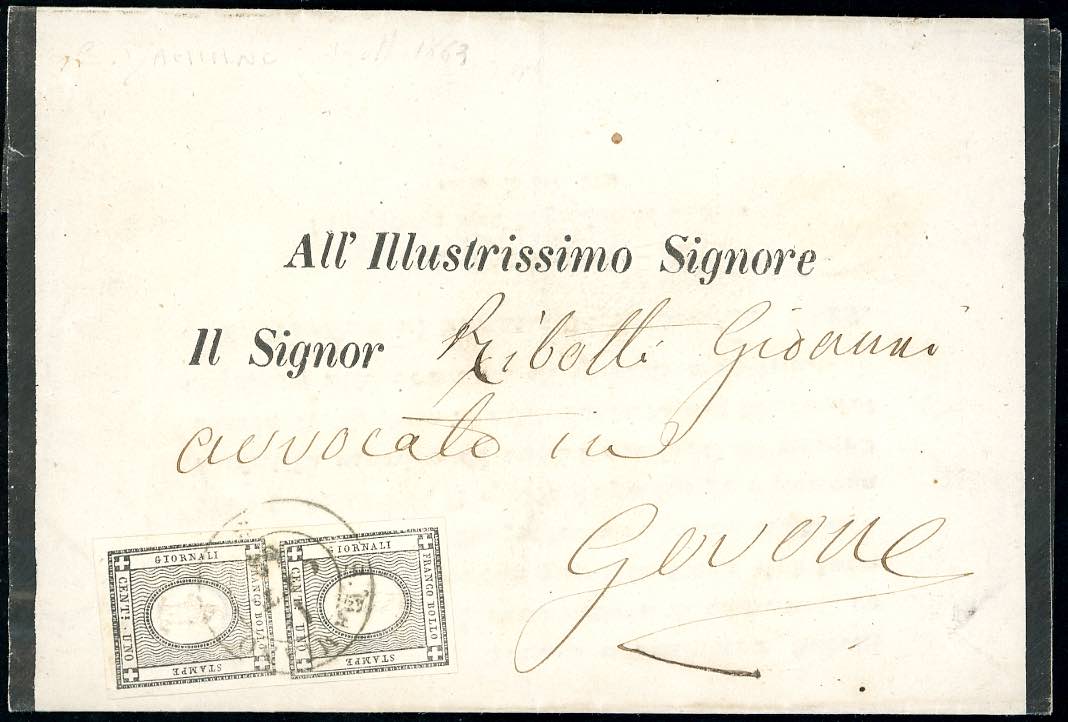 1863
All' Illustrissimo Signore
Il Signor Ribotti Gioanni
avvocato in
Govone
GIORNALI
FRANCO BOLLO
CENT! UNO
STAMPE
GIORNALI
FRANCO BOLLO
CENT! UNO
STAMPE